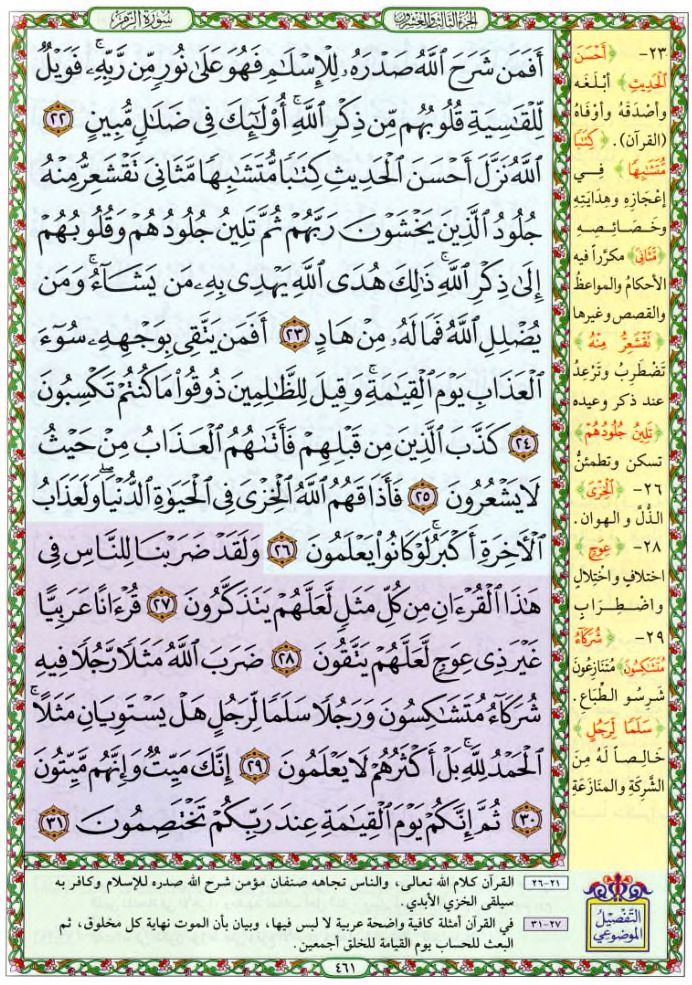 الجزء الثالث والعشرون
سُورَةُ الزُّمَر
أَفَمَن شَرَحَ ٱللَّهُ صَدْرَهُۥ لِلْإِسْلَٰمِ فَهُوَ عَلَىٰ نُورٍ مِّن رَّبِّهِۦۚ فَوَيْلٌ
لِّلْقَٰسِيَةِ قُلُوبُهُم مِّن ذِكْرِ ٱللَّهِۚ أُو۟لَٰٓئِكَ فِى ضَلَٰلٍ مُّبِينٍ ٢٢
ٱللَّهُ نَزَّلَ أَحْسَنَ ٱلْحَدِيثِ كِتَٰبًا مُّتَشَٰبِهًا مَّثَانِىَ تَقْشَعِرُّ مِنْهُ
جُلُودُ ٱلَّذِينَ يَخْشَوْنَ رَبَّهُمْ ثُمَّ تَلِينُ جُلُودُهُمْ وَقُلُوبُهُمْ
إِلَىٰ ذِكْرِ ٱللَّهِۚ ذَٰلِكَ هُدَى ٱللَّهِ يَهْدِى بِهِۦ مَن يَشَآءُۚ وَمَن
يُضْلِلِ ٱللَّهُ فَمَا لَهُۥ مِنْ هَادٍ ٢٣ أَفَمَن يَتَّقِى بِوَجْهِهِۦ سُوٓءَ
ٱلْعَذَابِ يَوْمَ ٱلْقِيَٰمَةِۚ وَقِيلَ لِلظَّٰلِمِينَ ذُوقُوا۟ مَا كُنتُمْ تَكْسِبُونَ
٢٤ كَذَّبَ ٱلَّذِينَ مِن قَبْلِهِمْ فَأَتَىٰهُمُ ٱلْعَذَابُ مِنْ حَيْثُ
لَا يَشْعُرُونَ ٢٥ فَأَذَاقَهُمُ ٱللَّهُ ٱلْخِزْىَ فِى ٱلْحَيَوٰةِ ٱلدُّنْيَاۖ وَلَعَذَابُ
ٱلْأَخِرَةِ أَكْبَرُۚ لَوْ كَانُوا۟ يَعْلَمُونَ ٢٦ وَلَقَدْ ضَرَبْنَا لِلنَّاسِ فِى
هَٰذَا ٱلْقُرْءَانِ مِن كُلِّ مَثَلٍ لَّعَلَّهُمْ يَتَذَكَّرُونَ ٢٧ قُرْءَانًا عَرَبِيًّا
غَيْرَ ذِى عِوَجٍ لَّعَلَّهُمْ يَتَّقُونَ ٢٨ ضَرَبَ ٱللَّهُ مَثَلًا رَّجُلًا فِيهِ
شُرَكَآءُ مُتَشَٰكِسُونَ وَرَجُلًا سَلَمًا لِّرَجُلٍ هَلْ يَسْتَوِيَانِ مَثَلًاۚ
ٱلْحَمْدُ لِلَّهِۚ بَلْ أَكْثَرُهُمْ لَا يَعْلَمُونَ ٢٩ إِنَّكَ مَيِّتٌ وَإِنَّهُم مَّيِّتُونَ
٣٠ ثُمَّ إِنَّكُمْ يَوْمَ ٱلْقِيَٰمَةِ عِندَ رَبِّكُمْ تَخْتَصِمُونَ ٣١
٢٣- ﴿أَحْسَنَ
ٱلْحَدِيثِ﴾ أبْلَغَه
وأصْدَقَهُ وأوْفَاهُ
(القرآن). ﴿كِتَٰبًا
مُّتَشَٰبِهًا﴾ فِي
إعْجَازِهِ وهِدَايَتِهِ
وخَصَائِصِهِ
﴿مَّثَانِىَ﴾ مكرَّراً فيه
الأحكامُ والمواعظُ
والقصص وغيرها
﴿تَقْشَعِرُّ مِنْهُ﴾
تَضْطَرِبُ وتَرْعَدُ
عند ذكر وعيده
﴿تَلِينُ جُلُودُهُمْ﴾
تسكن وتطمئنُّ
٢٦- ﴿ٱلْخِزْىَ﴾
الذُّلَّ والهوان.
٢٨- ﴿عِوَجٍ﴾
اختلافٍ واخْتِلالٍ
واضْطِرَابٍ
٢٩- ﴿شُرَكَآءُ
مُتَشَٰكِسُونَ﴾ مُتَنَازِعُونَ
شَرِسُو الطِّبَاعِ.
﴿سَلَمًا لِّرَجُلٍ﴾
خَالِصاً لَهُ مِنَ
الشَّرِكَةِ والمنَازَعَةِ
التَّفْصِيلُ
الموضُوعِي
٢١-٢٦ القرآن كلام الله تعالى، والناس تجاهه صنفان مؤمن شرح الله صدره للإسلام وكافر به
سيلقى الخزي الأبدي.
٢٧-٣١ في القرآن أمثلة كافية واضحة عربية لا لبس فيها، وبيان بأن الموت نهاية كل مخلوق، ثم
البعث للحساب يوم القيامة للخلق أجمعين.
٤٦١